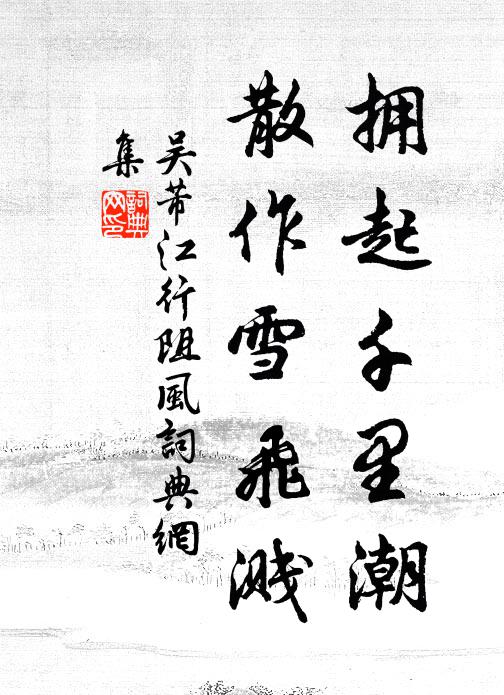 拥起千里潮
散作雪飛溅
吴芾江行阻風詞典網
集
詞典网印